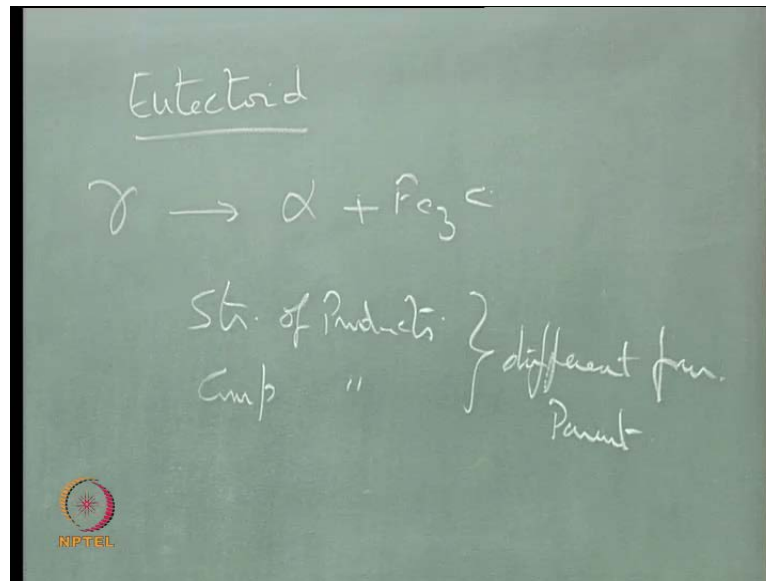 Eutectoid
γ → α + Fe3C
Str. of Products } different from
Comp " Parent
NPTEL